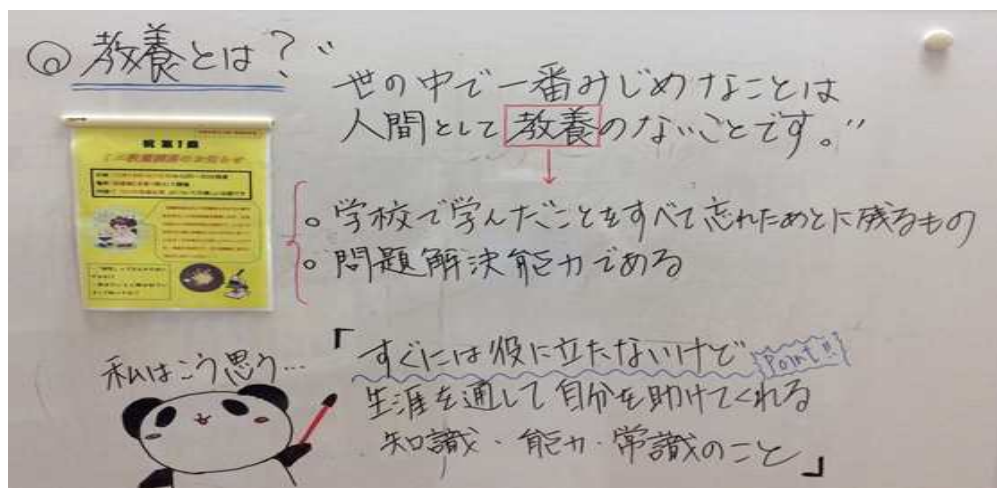 教養とは？
“世の中で一番みじめなことは
人間として教養のないことです。”
祝 第1回
ミニ教養講座のお知らせ
○学校で学んだことをすべて忘れたあとに残るもの
○問題解決能力である
私はこう思う…
「すぐには役に立たないけど
Point!!
生涯を通して自分を助けてくれる
知識・能力・常識のこと」